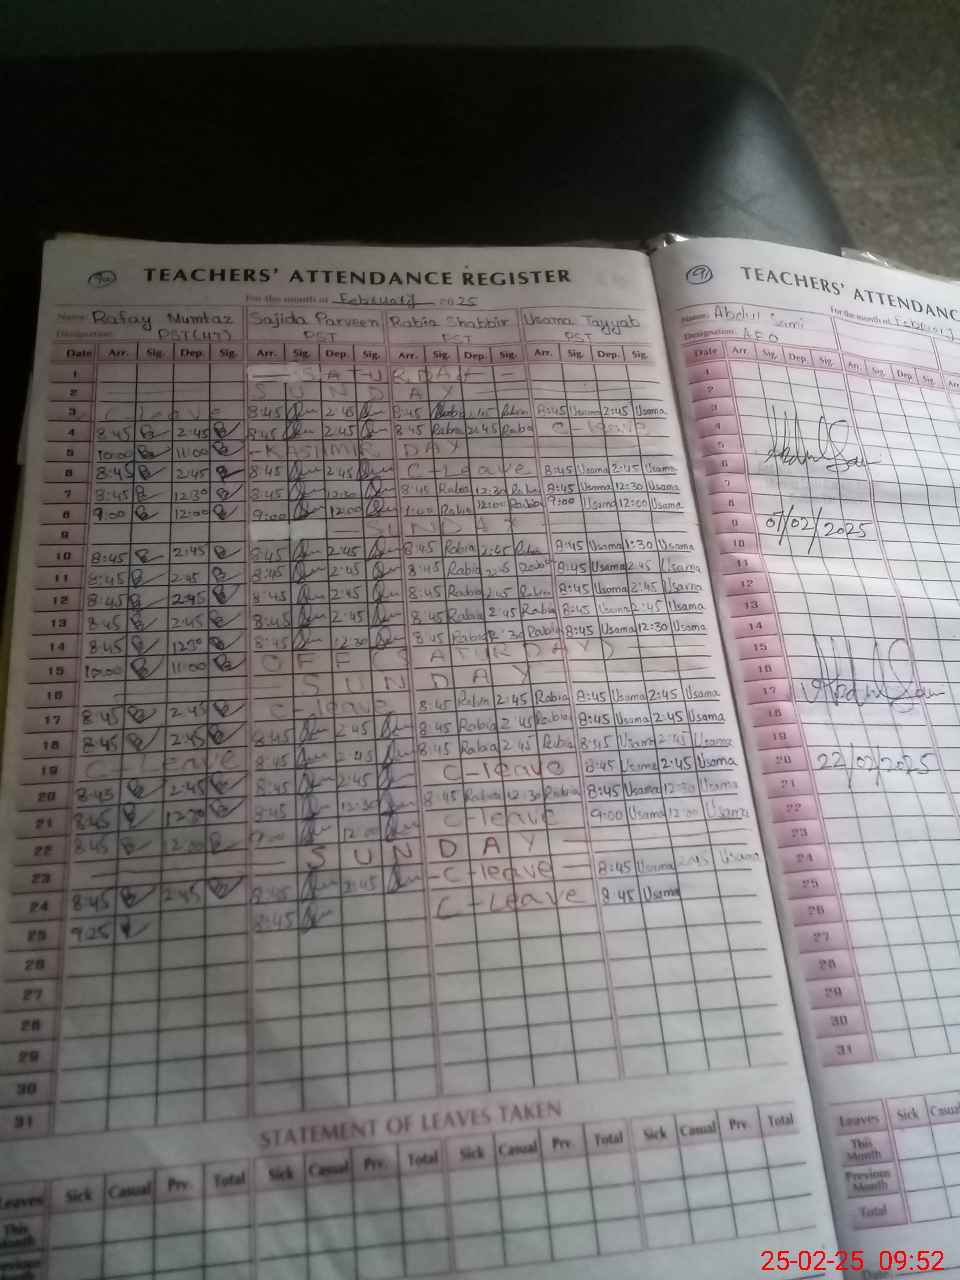 90 TEACHERS' ATTENDANCE REGISTER
For the month of February 2025
Name: Rafay Mumtaz Sajida Parveen Rabia Shabbir Usama Tayyab
Designation: PST(HT) PST PST PST
Date Arr. Sig. Dep. Sig. Arr. Sig. Dep. Sig. Arr. Sig. Dep. Sig. Arr. Sig. Dep. Sig.
1 SATURDAY
2 SUNDAY
3 C-Leave 8:45 2:45 8:45 Rabia 2:45 Rabia 8:45 Usama 2:45 Usama
4 8:45 2:45 8:45 2:45 8:45 Rabia 2:45 Rabia C-leave
5 10:00 11:00 -KASHMIR DAY
6 8:45 2:45 8:45 2:45 C-Leave 8:45 Usama 2:45 Usama
7 8:45 12:30 8:45 12:30 8:45 Rabia 12:30 Rabia 8:45 Usama 12:30 Usama
8 9:00 12:00 9:00 12:00 Rabia 12:00 Rabia 9:00 Usama 12:00 Usama
9 SUNDAY
10 8:45 2:45 8:45 2:45 8:45 Rabia 2:45 Rabia 8:45 Usama 1:30 Usama
11 8:45 2:45 8:45 2:45 8:45 Rabia 2:45 Rabia 8:45 Usama 2:45 Usama
12 8:45 2:45 8:45 2:45 8:45 Rabia 2:45 Rabia 8:45 Usama 2:45 Usama
13 8:45 2:45 8:45 2:45 8:45 Rabia 2:45 Rabia 8:45 Usama 2:45 Usama
14 8:45 12:30 8:45 12:30 8:45 Rabia 12:30 Rabia 8:45 Usama 12:30 Usama
15 10:00 11:00 OFF (SATURDAY)
16 SUNDAY
17 8:45 2:45 C-leave 8:45 Rabia 2:45 Rabia 8:45 Usama 2:45 Usama
18 8:45 2:45 8:45 2:45 8:45 Rabia 2:45 Rabia 8:45 Usama 2:45 Usama
19 C-Leave 8:45 2:45 8:45 Rabia 2:45 Rabia 8:45 Usama 2:45 Usama
20 8:45 2:45 8:45 2:45 C-leave 8:45 Usama 2:45 Usama
21 8:45 12:30 8:45 12:30 8:45 Rabia 12:30 Rabia 8:45 Usama 12:30 Usama
22 8:45 12:00 9:00 12:00 C-leave 9:00 Usama 12:00 Usama
23 SUNDAY
24 8:45 2:45 8:45 2:45 -C-leave- 8:45 Usama 2:45 Usama
25 9:25 8:45 C-Leave 8:45 Usama
26
27
28
29
30
31
STATEMENT OF LEAVES TAKEN
Leaves Sick Casual Prv. Total Sick Casual Prv. Total Sick Casual Prv. Total Sick Casual Prv. Total
This Month
91 TEACHERS' ATTENDANC
For the month of February
Name: Abdul Sami
Designation: AEO
Date Arr. Sig. Dep. Sig. Arr. Sig. Dep.
1
2
3
4
5
6
7
8
9 07/02/2025
10
11
12
13
14
15
16
17
18
19
20 22/02/2025
21
22
23
24
25
26
27
28
29
30
31
Leaves Sick Casual
This Month
Previous Month
Total
25-02-25 09:52